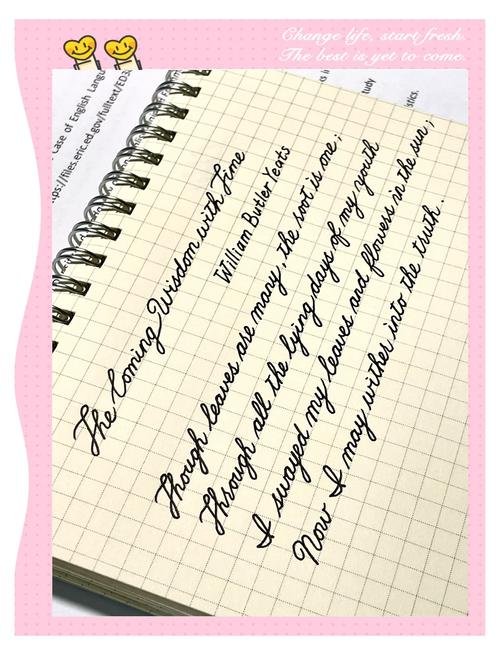 Change life, start fresh.
The best is yet to come.
Case of English
ttps://files.eric.ed.gov/fulltext/ED3
The Coming Wisdom with Time
William Butler Yeats
Though leaves are many, the root is one;
Through all the lying days of my youth
I swayed my leaves and flowers in the sun;
Now I may wither into the truth.